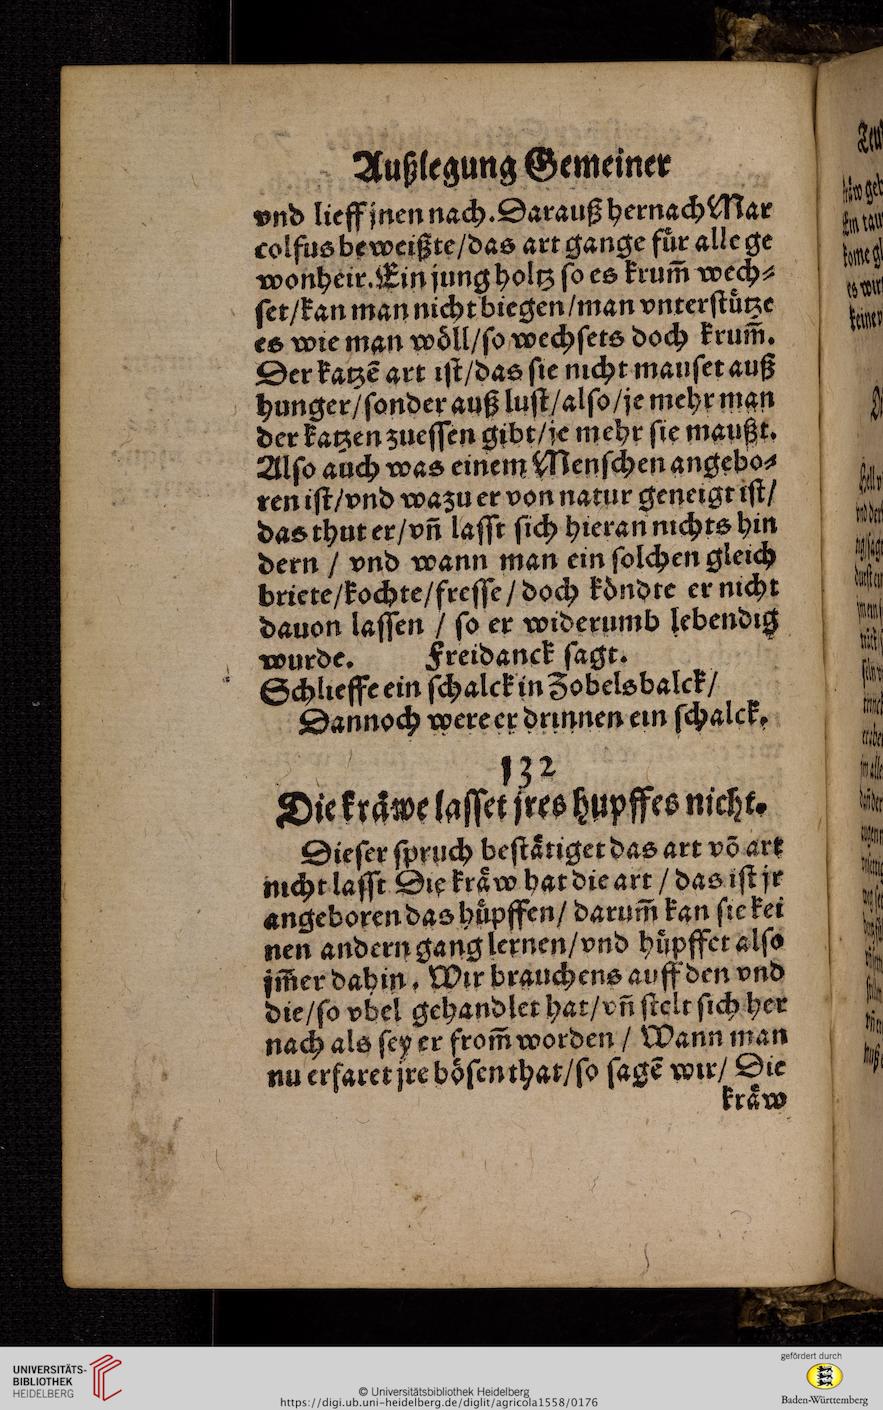 Außlegung Gemeiner
vnd lieff jnen nach. Darauß hernach Mar
colfus beweißte/das art gange fuͤr alle ge
wonheit. Ein jung holtz so es krum̃ wech⸗
set/kan man nicht biegen/man vnterstuͤtze
es wie man woͤll/so wechsets doch krum̃.
Der katzẽ art ist/das sie nicht mauset auß
hunger/sonder auß lust/also/je mehr man
der katzen zuessen gibt/je mehr sie maußt.
Also auch was einem Menschen angebo⸗
ren ist/vnd wazu er von natur geneigt ist/
das thut er/vñ lasst sich hieran nichts hin
dern / vnd wann man ein solchen gleich
briete/kochte/fresse/doch koͤndte er nicht
dauon lassen / so er widerumb lebendig
wurde. Freidanck sagt.
Schlieffe ein schalck in Zobelsbalck/
Dannoch were er drinnen ein schalck.
132
Die kraͤwe lasset jres hupffes nicht.
Dieser spruch bestaͤtiget das art võ art
nicht lasst Die kraͤw hat die art / das ist jr
angeboren das huͤpffen/ darum̃ kan sie kei
nen andern gang lernen/vnd huͤpffet also
jm̃er dahin. Wir brauchens auff den vnd
die/so vbel gehandlet hat/vñ stelt sich her
nach als sey er from̃ worden / Wann man
nu erfaret jre boͤsen that/so sagẽ wir/ Die
kraͤw
UNIVERSITÄTS-
BIBLIOTHEK
HEIDELBERG
© Universitätsbibliothek Heidelberg
https://digi.ub.uni-heidelberg.de/diglit/agricola1558/0176
gefördert durch
Baden-Württemberg